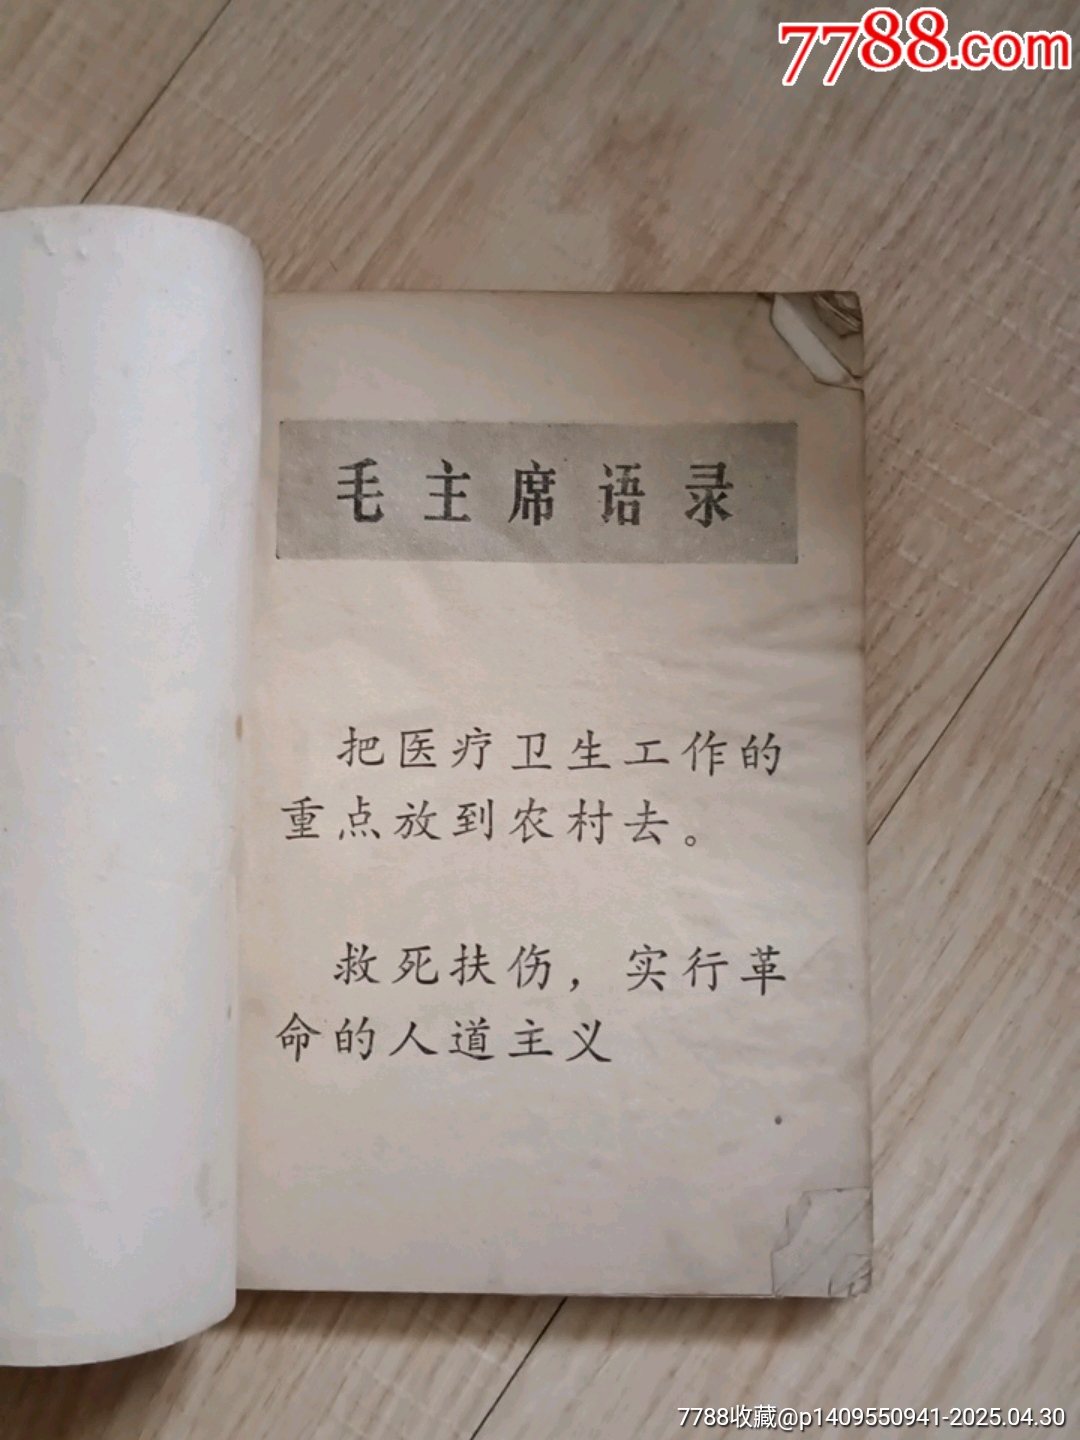 7788.com
毛主席语录
把医疗卫生工作的
重点放到农村去。
救死扶伤，实行革
命的人道主义
7788收藏@p1409550941-2025.04.30